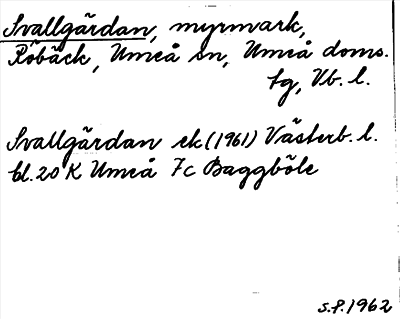 Svallgärdan, myrmark,
Röbäck, Umeå sn, Umeå doms.
tg, Vb. l.
Svallgärdan ek (1961) Västerb. l.
bl. 20 K Umeå 7c Baggböle
S.P. 1962